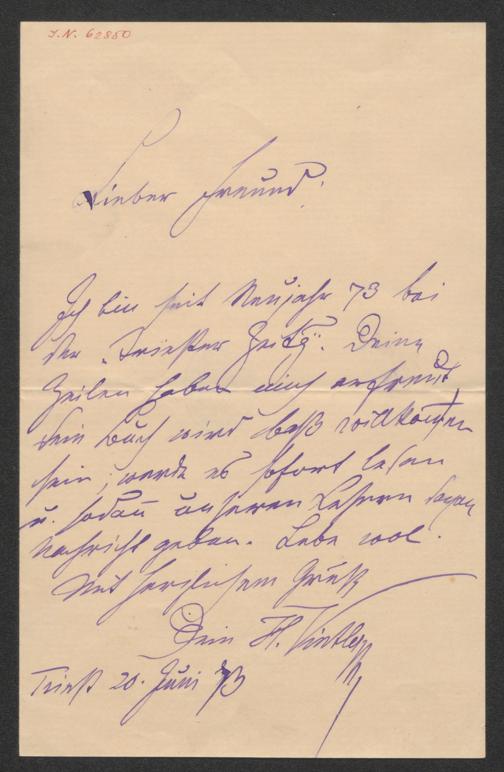 I.N. 62850
Lieber Freund!
Ich bin seit Neujahr 73 bei
der „Triester Zeitg“. Deine
Zeilen haben mich erfreut,
dein Buch wird best willkommen
sein; werde es sofort lesen
u. sodann unseren Lesern davon
Nachricht geben. Lebe wol.
Mit herzlichem Gruß
Dein H.
Triest 20. Juni 73